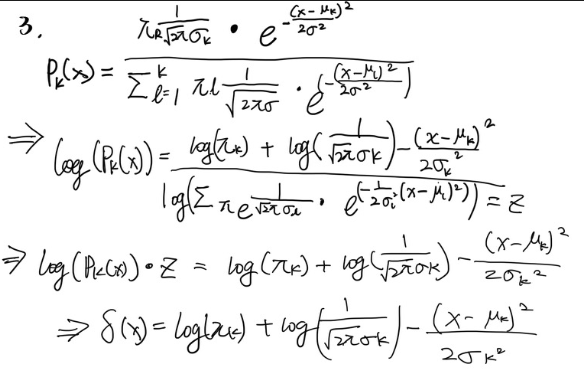 3. P_k(x) = \frac{\pi_k \frac{1}{\sqrt{2\pi}\sigma_k} \cdot e^{-\frac{(x-\mu_k)^2}{2\sigma^2}}}{\sum_{l=1}^{k} \pi l \frac{1}{\sqrt{2\pi}\sigma} \cdot e^{(-\frac{(x-\mu_l)^2}{2\sigma^2})}}
⇒ log(P_k(x)) = \frac{log(\pi_k) + log(\frac{1}{\sqrt{2\pi}\sigma_k}) - \frac{(x-\mu_k)^2}{2\sigma_k^2}}{log(\sum \pi_e \frac{1}{\sqrt{2\pi}\sigma_l} \cdot e^{(-\frac{1}{2\sigma_i^2}(x-\mu_l)^2)}) = Z}
⇒ log(P_k(x)) \cdot Z = log(\pi_k) + log(\frac{1}{\sqrt{2\pi}\sigma_k}) - \frac{(x-\mu_k)^2}{2\sigma_k^2}
⇒ δ(x) = log(\pi_k) + log(\frac{1}{\sqrt{2\pi}\sigma_k}) - \frac{(x-\mu_k)^2}{2\sigma_k^2}